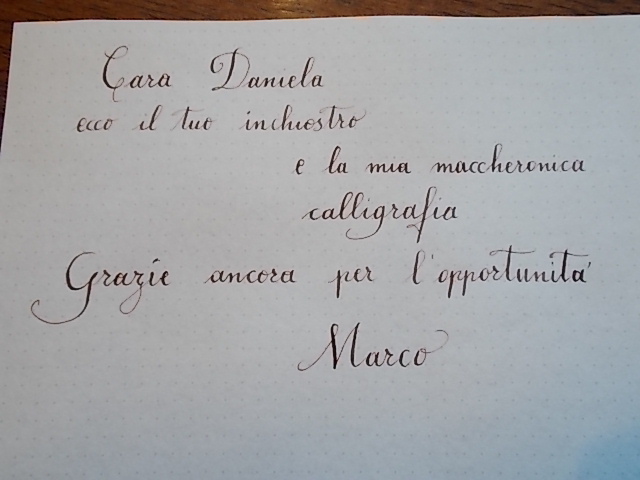 Cara Daniela
ecco il tuo inchiostro
e la mia maccheronica
calligrafia
Grazie ancora per l'opportunità
Marco